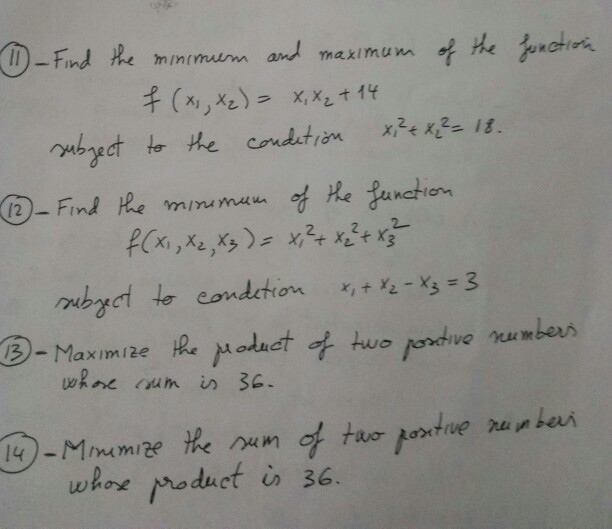 11 - Find the minimum and maximum of the function
f(x₁, x₂) = x₁x₂ + 14
subject to the condition x₁² + x₂² = 18.
12 - Find the minimum of the function
f(x₁, x₂, x₃) = x₁² + x₂² + x₃²
subject to condition x₁ + x₂ - x₃ = 3
13 - Maximize the product of two positive numbers
whose sum is 36.
14 - Minimize the sum of two positive numbers
whose product is 36.